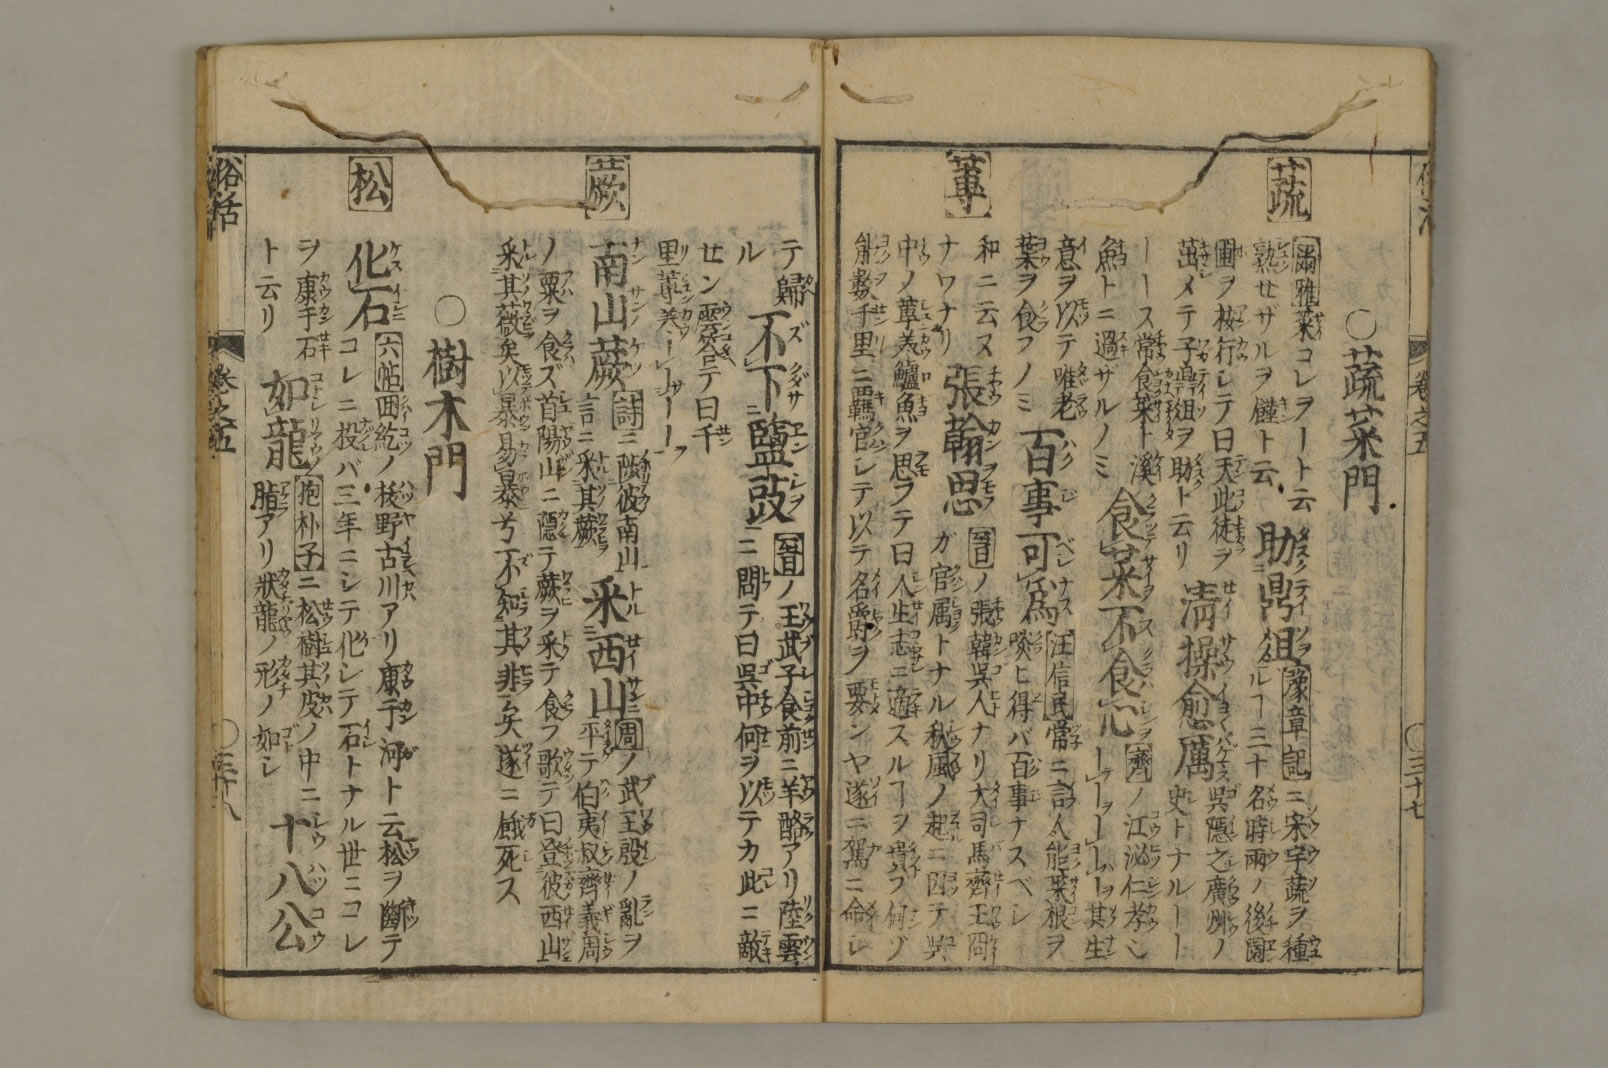 ○蔬菜門
蔬
爾雅菜コレヲート云
熟セザルヲ饉ト云
助鼎俎
豫章記ニ宋宇蔬ヲ種
ルヿ三十名時雨ノ後園
圃ヲ按行シテ曰天此徒ヲ
茁メテ子鼎俎ヲ助ト云リ
清操愈厲
呉隱之廣州ノ
史トナルーー
ーース常食菜ト
魚トニ過ザルノミ
食菜不食心
齊ノ江泌仁孝
ーーヲーーー其生
意ヲ以テ唯老
葉ヲ食フノミ
百事可為
汪信民常ニ言人能菜根ヲ
咬ヒ得バ百事ナスベシ
和ニ云ヌ
ナワナリ
蓴
張翰思
晋ノ張翰呉人ナリ大司馬齊王冏
ガ官属トナル秋風ノ起ニ因テ呉
中ノ蓴羹鱸魚ヲ思フテ曰人生志ニ適スルヿヲ貴フ何ゾ
能數千里ニ羈官シテ以テ名爵ヲ要ンヤ遂ニ駕ニ命シ
卷之五
○三十七
テ歸ル
不下鹽豉
晋ノ王武子食前ニ羊酪アリ陸雲
ニ問テ曰呉中何ヲ以テカ此ニ敵
セン雲答テ曰千
里蓴羹ーーーー
蕨
南山蕨
詩ニ陟彼南山
言ニ釆其蕨
釆西山
周ノ武王殷ノ亂ヲ
平テ伯夷叔齊義周
ノ粟ヲ食ズ首陽山ニ隱テ蕨ヲ釆テ食フ歌テ曰登彼西山
釆其薇矣以暴易暴兮不知其非矣遂ニ餓死ス
○樹木門
松
化石
六帖回紇ノ枝野古川アリ康干河ト云松ヲ斷テ
コレニ投バ三年ニシテ化シテ石トナル世ニコレ
ヲ康干石
ト云リ
如龍
抱朴子ニ松樹其皮ノ中ニ
脂アリ狀龍ノ形ノ如シ
十八公
俗話
卷之五
○三十八